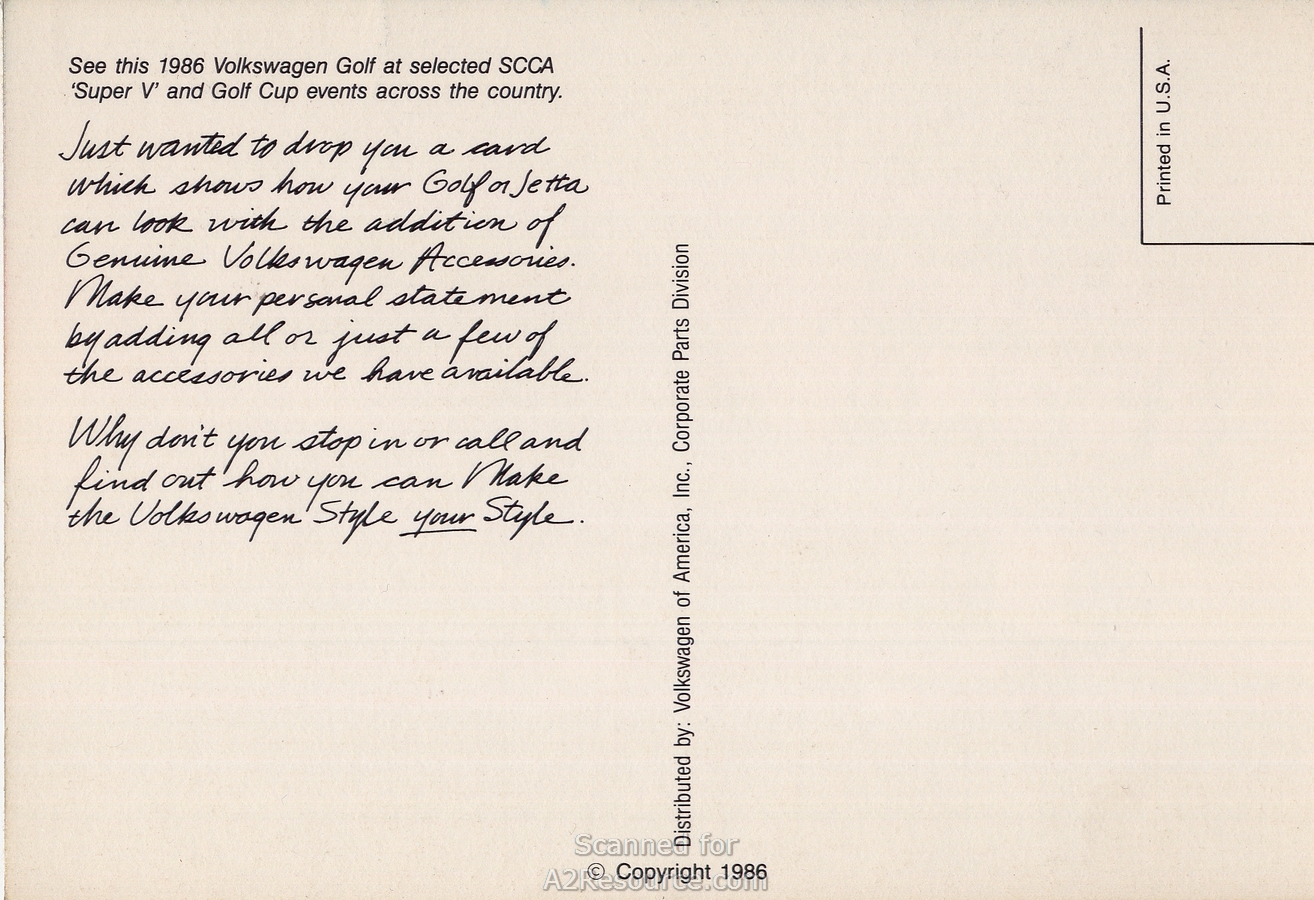 See this 1986 Volkswagen Golf at selected SCCA
'Super V' and Golf Cup events across the country.
Just wanted to drop you a card
which shows how your Golf or Jetta
can look with the addition of
Genuine Volkswagen Accessories.
Make your personal statement
by adding all or just a few of
the accessories we have available.
Why don't you stop in or call and
find out how you can Make
the Volkswagen Style your Style.
Distributed by: Volkswagen of America, Inc., Corporate Parts Division
Printed in U.S.A.
Scanned for
© Copyright 1986
A2Resource.com